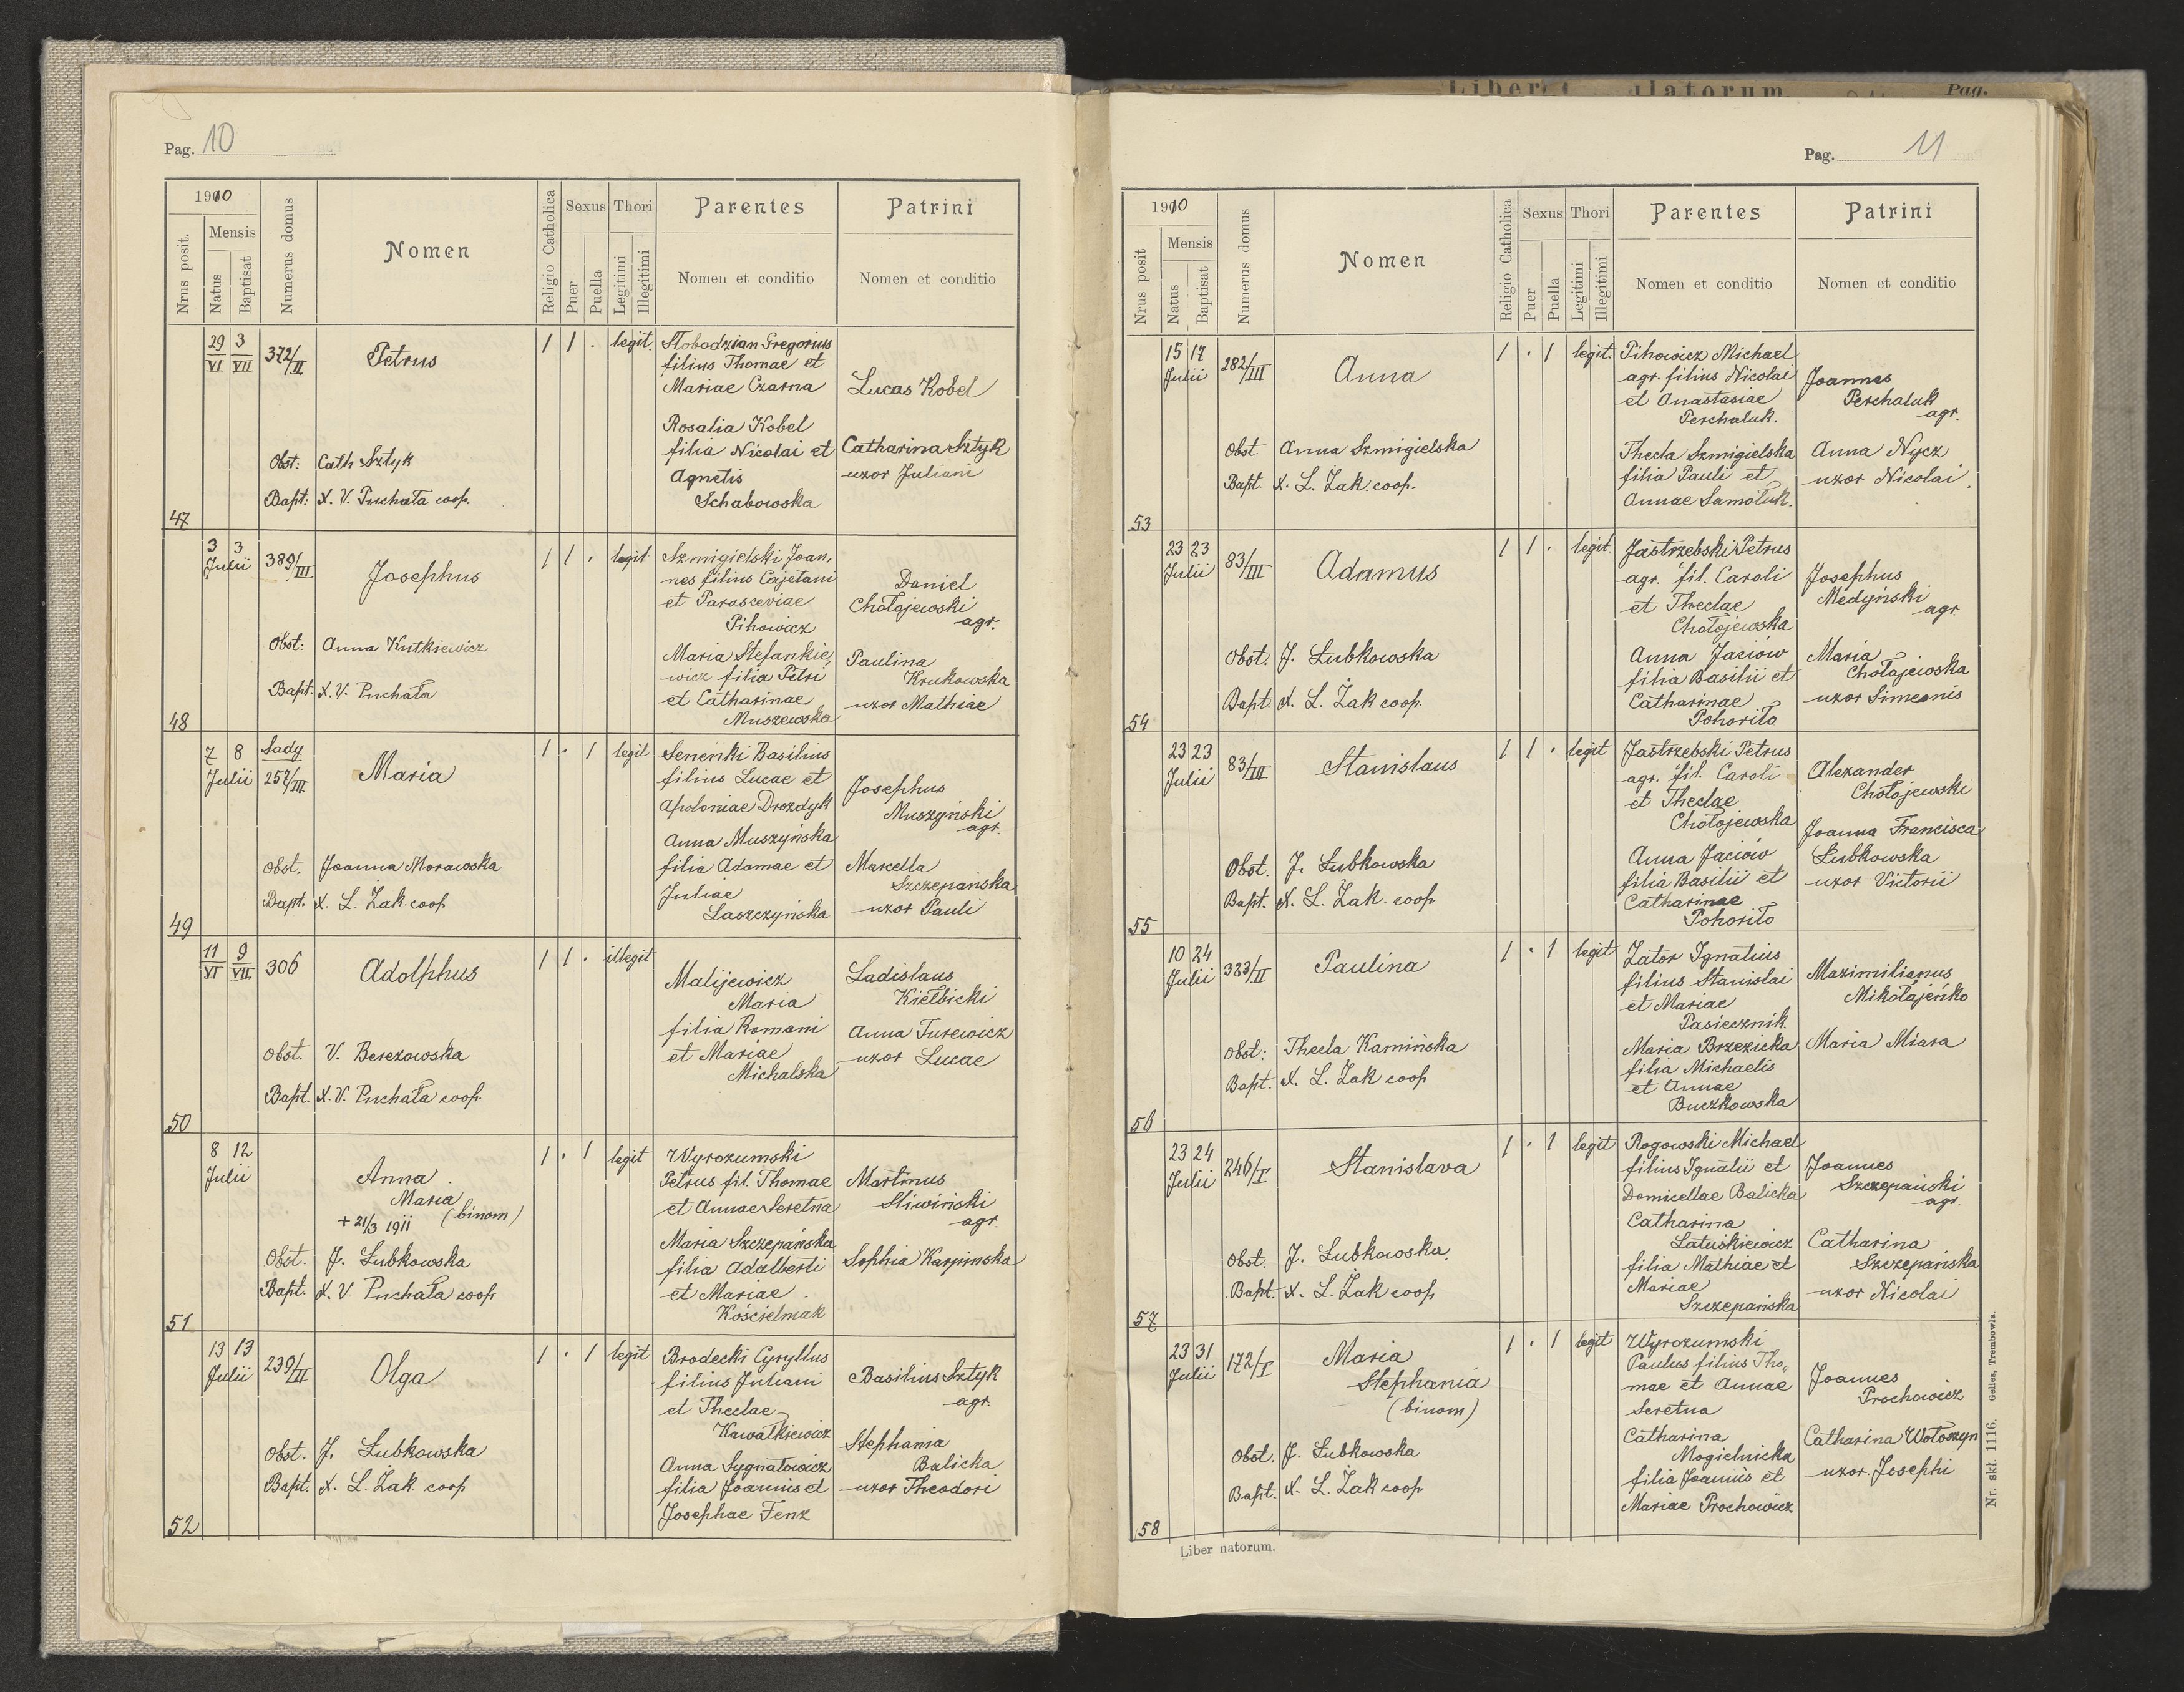 Pag. 10
1910
Nrus posit.
Mensis
Natus
Baptisat
Numerus domus
Nomen
Religio Catholica
Sexus
Puer
Puella
Thori
Legitimi
Illegitimi
Parentes
Nomen et conditio
Patrini
Nomen et conditio
47
29/VI 3/VII
372/II
Petrus
1 1 . legit.
Obst: Cath Sztyk
Bapt: X. V. Puchała coop.
Słobodzian Gregorius
filius Thomae et
Mariae Czarna
Rosalia Kobel
filia Nicolai et
Agnetis
Schabowska
Lucas Kobel
Catharina Sztyk
uxor Juliani
48
3 3
Julii
389/III
Josephus
1 1 . legit
Obst: Anna Kutkiewicz
Bapt. X. V. Puchała
Szmigielski Joan,
nes filius Cajetani
et Parasceviae
Pihowicz
Maria Stefankie,
wicz filia Petri
et Catharinae
Muszewska
Daniel
Chołojewski
agr.
Paulina
Krukowska
uxor Mathiae
49
7 8
Julii
Sady
257/III
Maria
1 . 1 legit
Obst. Joanna Morawska
Bapt. X. L. Żak. coop.
Seneńki Basilius
filius Lucae et
Apoloniae Drozdyk
Anna Muszyńska
filia Adamae et
Juliae
Laszczyńska
Josephus
Muszyński
agr.
Marcella
Szczepańska
uxor Pauli
50
11/VI 9/VII
306
Adolphus
1 1 . illegit
Obst. V. Berezowska
Bapt. X. V. Puchała coop.
Malijewicz
Maria
filia Romani
et Mariae
Michalska
Ladislaus
Kiełbicki
Anna Turewicz
uxor Lucae
51
8 12
Julii
Anna
Maria
(binom)
+ 21/3 1911
1 . 1 legit
Obst. J. Łubkowska
Bapt. X. V. Puchała coop
Wyrozumski
Petrus fil. Thomae
et Annae Seretna
Maria Szczepańska
filia Adalberti
et Mariae
Kościelniak
Martinus
Sliwiński
agr.
Sophia Karpinska
52
13 13
Julii
239/II
Olga
1 . 1 legit
Obst. J. Łubkowska
Bapt. X. L. Żak. coop
Brodecki Cyryllus
filius Juliani
et Theclae
Kawałkiewicz
Anna Sygnatowicz
filia Joannis et
Josephae Fenz
Basilius Sztyk
agr.
Stephania
Balicka
uxor Theodori
Pag. 11
1910
Nrus posit
Mensis
Natus
Baptisat
Numerus domus
Nomen
Religio Catholica
Sexus
Puer
Puella
Thori
Legitimi
Illegitimi
Parentes
Nomen et conditio
Patrini
Nomen et conditio
53
15 17
Julii
282/III
Anna
1 . 1 legit
Obst. Anna Szmigielska
Bapt. X. L. Żak. coop.
Pihowicz Michael
agr. filius Nicolai
et Anastasiae
Perchaluk.
Thecla Szmigielska
filia Pauli et
Annae Samoluk.
Joannes
Perchaluk
agr.
Anna Nycz
uxor Nicolai
54
23 23
Julii
83/III
Adamus
1 1 . legit.
Obst. J. Łubkowska
Bapt. X. L. Żak coop.
Jastrzebski Petrus
agr. fil. Caroli
et Theclae
Chołojewska
Anna Jaciów
filia Basilii et
Catharinae
Pohoriło
Josephus
Medyński
agr.
Maria
Chołojewska
uxor Simeonis
55
23 23
Julii
83/III
Stanislaus
1 1 . legit
Obst. J. Łubkowska
Bapt. X. L. Żak. coop
Jastrzebski Petrus
agr. fil. Caroli
et Theclae
Chołojewska
Anna Jaciów
filia Basilii et
Catharinae
Pohoriło
Alexander
Chołojewski
Joanna Francisca
Łubkowska
uxor Victorii
56
10 24
Julii
323/II
Paulina
1 . 1 legit
Obst: Thecla Kamińska
Bapt. X. L. Żak coop
Zator Ignatius
filius Stanislai
et Mariae
Pasiecznik.
Maria Brzezicka
filia Michaelis
et Annae
Buczkowska
Maximilianus
Mikołajeńko
Maria Miara
57
23 24
Julii
246/I
Stanislava
1 . 1 legit
Obst. J. Łubkowska.
Bapt. X. L. Żak coop
Rogowski Michael
filius Ignatii et
Domicellae Balicka
Catharina
Łatuśkiewicz
filia Mathiae et
Mariae
Szczepańska
Joannes
Szczepański
agr.
Catharina
Szczepańska
uxor Nicolai
58
23 31
Julii
172/I
Maria
Stephania
(binom)
1 . 1 legit
Obst. J. Łubkowska
Bapt. X. L. Żak coop
Wyrozumski
Paulus filius Tho,
mae et Annae
Seretna
Catharina
Mogielnicka
filia Joannis et
Mariae Prochowicz
Joannes
Prochowicz
Catharina Wołoszyn
uxor Josephi
Liber natorum.
Nr. skł. 1116. Gelles, Trembowla.